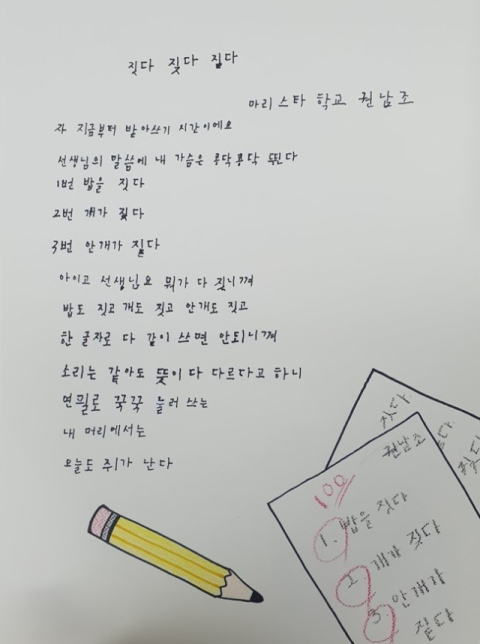 짓다 짖다 짙다
마리스타 학교 권남조
자 지금부터 받아쓰기 시간이에요
선생님의 말씀에 내 가슴은 콩닥콩닥 뛴다
1번 밥을 짓다
2번 개가 짖다
3번 안개가 짙다
아이고 선생님요 뭐가 다 짓니껴
밥도 짓고 개도 짖고 안개도 짓고
한 글자로 다 같이 쓰면 안되니껴
소리는 같아도 뜻이 다 다르다고 하니
연필로 꾹꾹 눌러 쓰는
내 머리에서는
오늘도 쥐가 난다
짓다
짖다
권남조
100
1. 밥을 짓다
2. 개가 짖다
3. 안개가
짙다